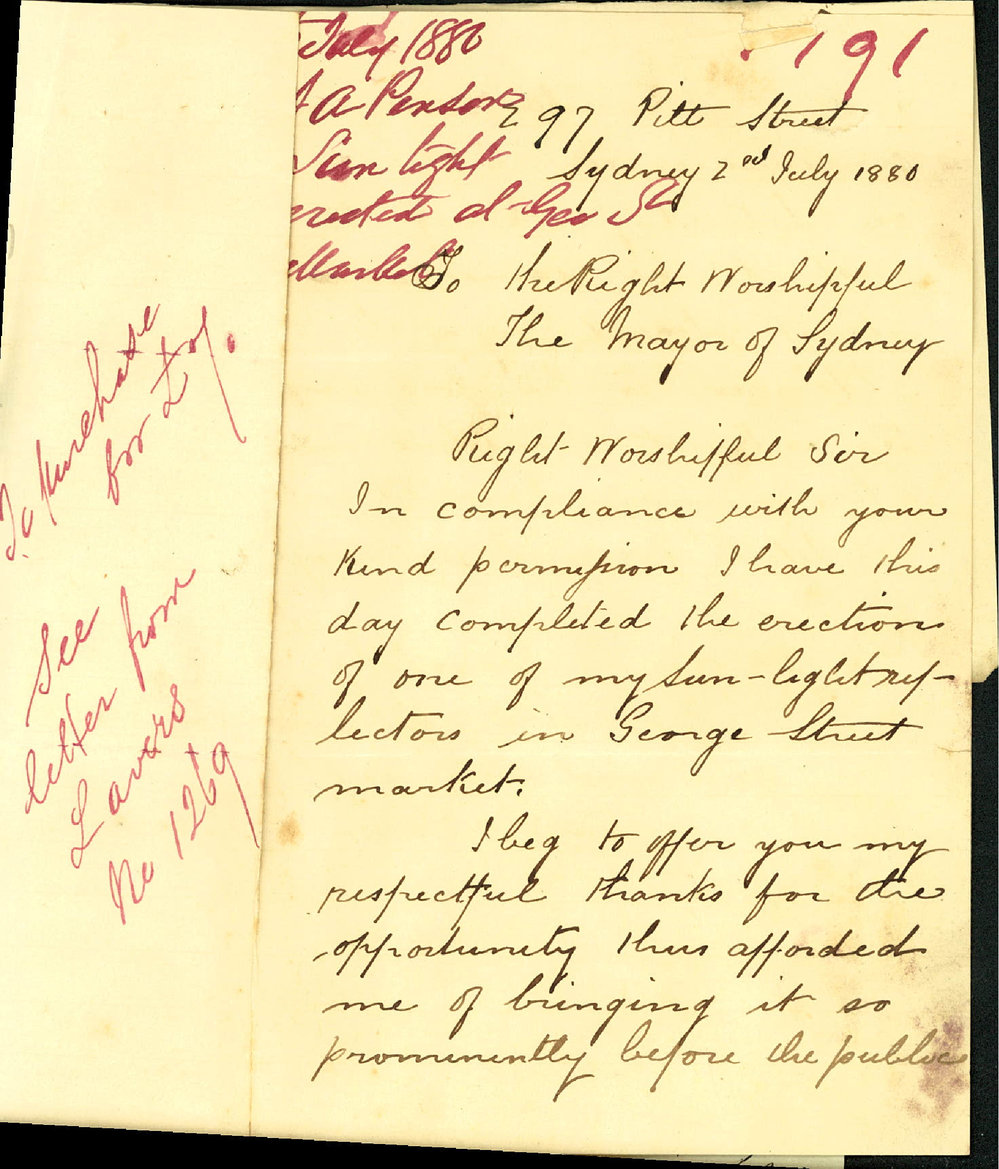 July 1880
191
A Penson
297 Pitt Street
Sun light
Sydney 2nd July 1880
erected at Geo St
Market
To the Right Worshipful
The Mayor of Sydney
Right Worshipful Sir
In compliance with your
Kind permission I have this
day completed the erection
of one of my Sun-light ref-
lectors in George Street
market.
I beg to offer you my
respectful thanks for the
opportunity thus afforded
me of bringing it so
prominently before the public
To purchase
for £
See
letter from
Lavers
No 1269